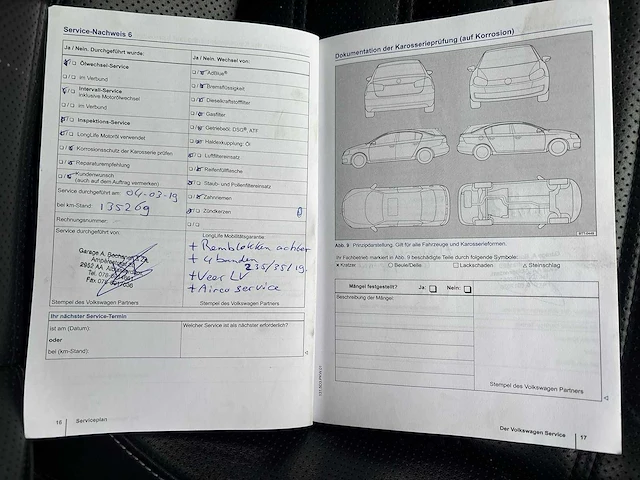 Service-Nachweis 6
Ja / Nein. Durchgeführt wurde:
Ölwechsel-Service
im Verbund
Intervall-Service
Inklusive Motorölwechsel
im Verbund
Inspektions-Service
LongLife Motoröl verwendet
Korrosionsschutz der Karosserie prüfen
Reparaturempfehlung
Kundenwunsch
(auch auf dem Auftrag vermerken)
Service durchgeführt am: 04-03-19
bei km-Stand: 135269
Rechnungsnummer:
Service durchgeführt von:
Garage A.
Stempel des Volkswagen Partners
Ja / Nein. Wechsel von:
AdBlue®
Bremsflüssigkeit
Dieselkraftstofffilter
Gasfilter
Getriebeöl: DSG®, ATF
Haldexkupplung: Öl
Luftfiltereinsatz
Reifenfüllflasche
Staub- und Pollenfiltereinsatz
Zahnriemen
Zündkerzen
LongLife Mobilitätsgarantie
+ Remblokken achter
+ 4 banden
235/35/19.
+ Veer LV
+ Airco service
Stempel des Volkswagen Partners
Ihr nächster Service-Termin
ist am (Datum):
oder
bei (km-Stand):
Welcher Service ist als nächster erforderlich?
16 Serviceplan
Dokumentation der Karosserieprüfung (auf Korrosion)
Abb. 9 Prinzipdarstellung: Gilt für alle Fahrzeuge und Karosserieformen.
Ihr Fachbetrieb markiert in Abb. 9 beschädigte Teile durch folgende Symbole:
× Kratzer ○ Beule/Delle □ Lackschaden △ Steinschlag
Mängel festgestellt? Ja: Nein:
Beschreibung der Mängel:
Stempel des Volkswagen Partners
Der Volkswagen Service 17